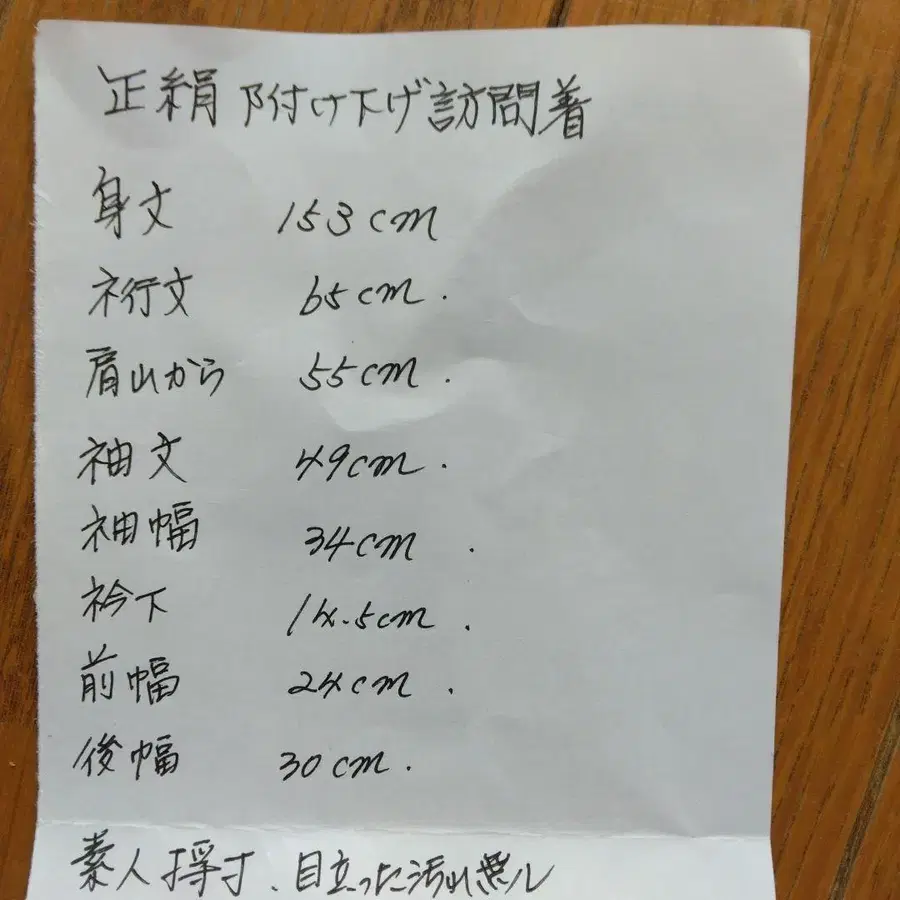 正絹 附け下げ訪問着
身丈 153cm
裄丈 65cm.
肩山から 55cm.
袖丈 49cm.
袖幅 34cm.
衿下 14.5cm.
前幅 24cm.
後幅 30cm.
素人採寸、目立った汚れ無し